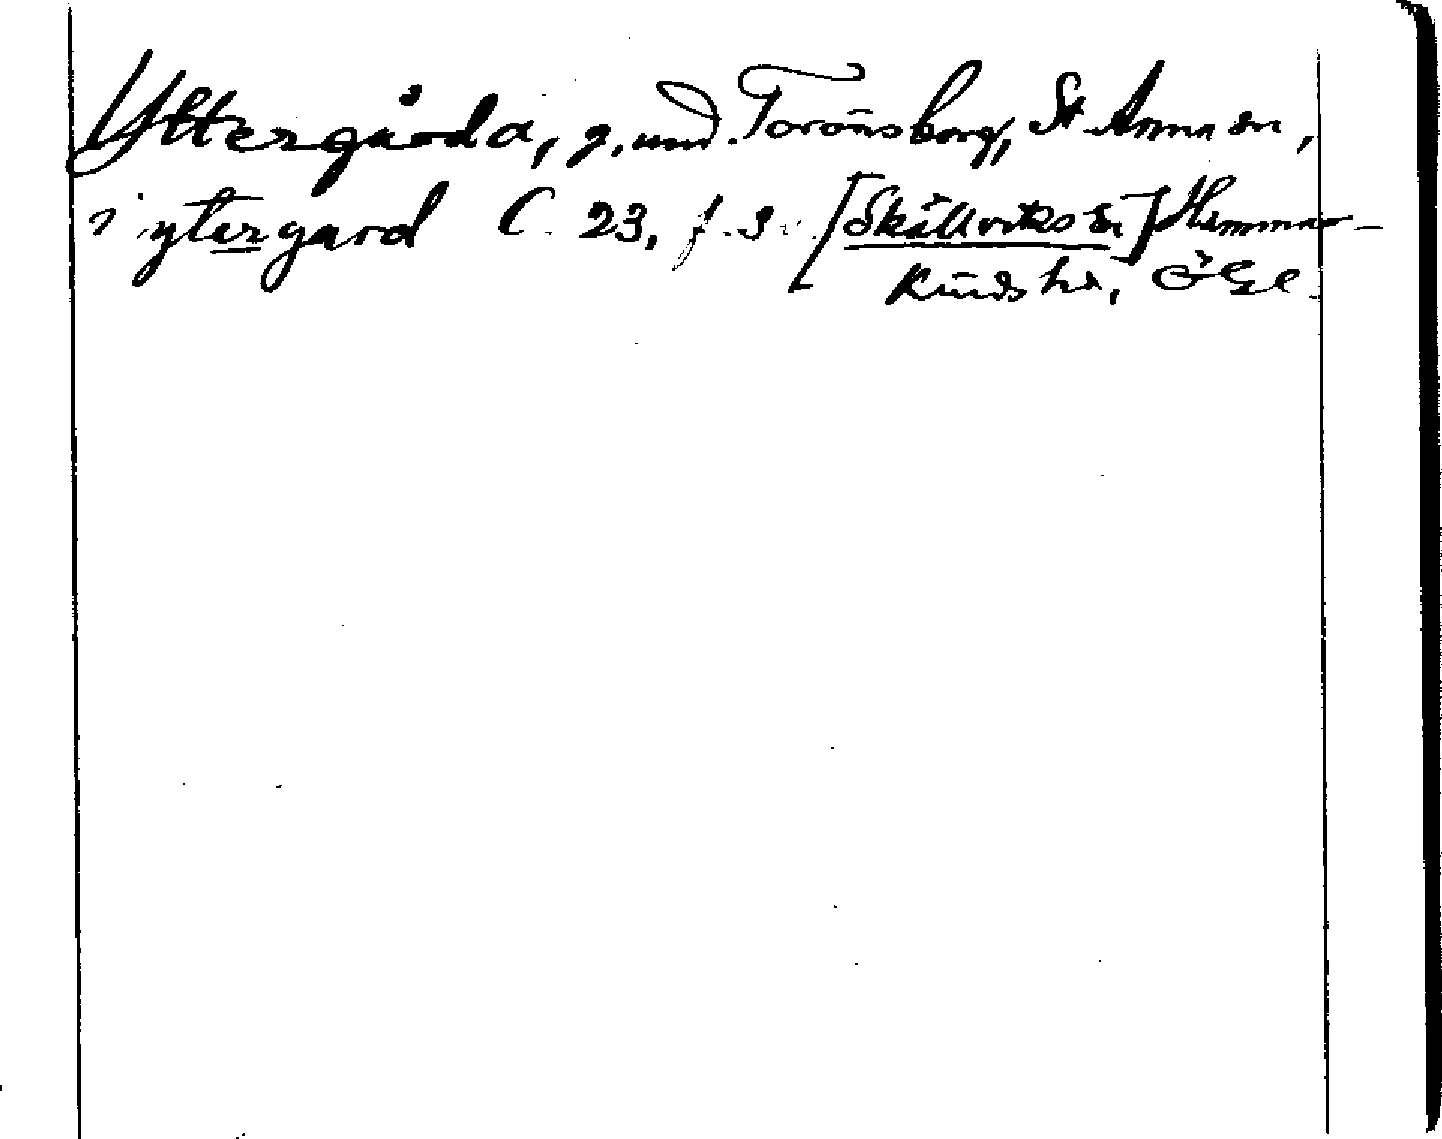 Yttergårda, g. und. Torönsborg, St Anna sn,
i ytergard C 23, f. 9. [Skällviks sn] Hammar-
kinds hd, ÖGl.